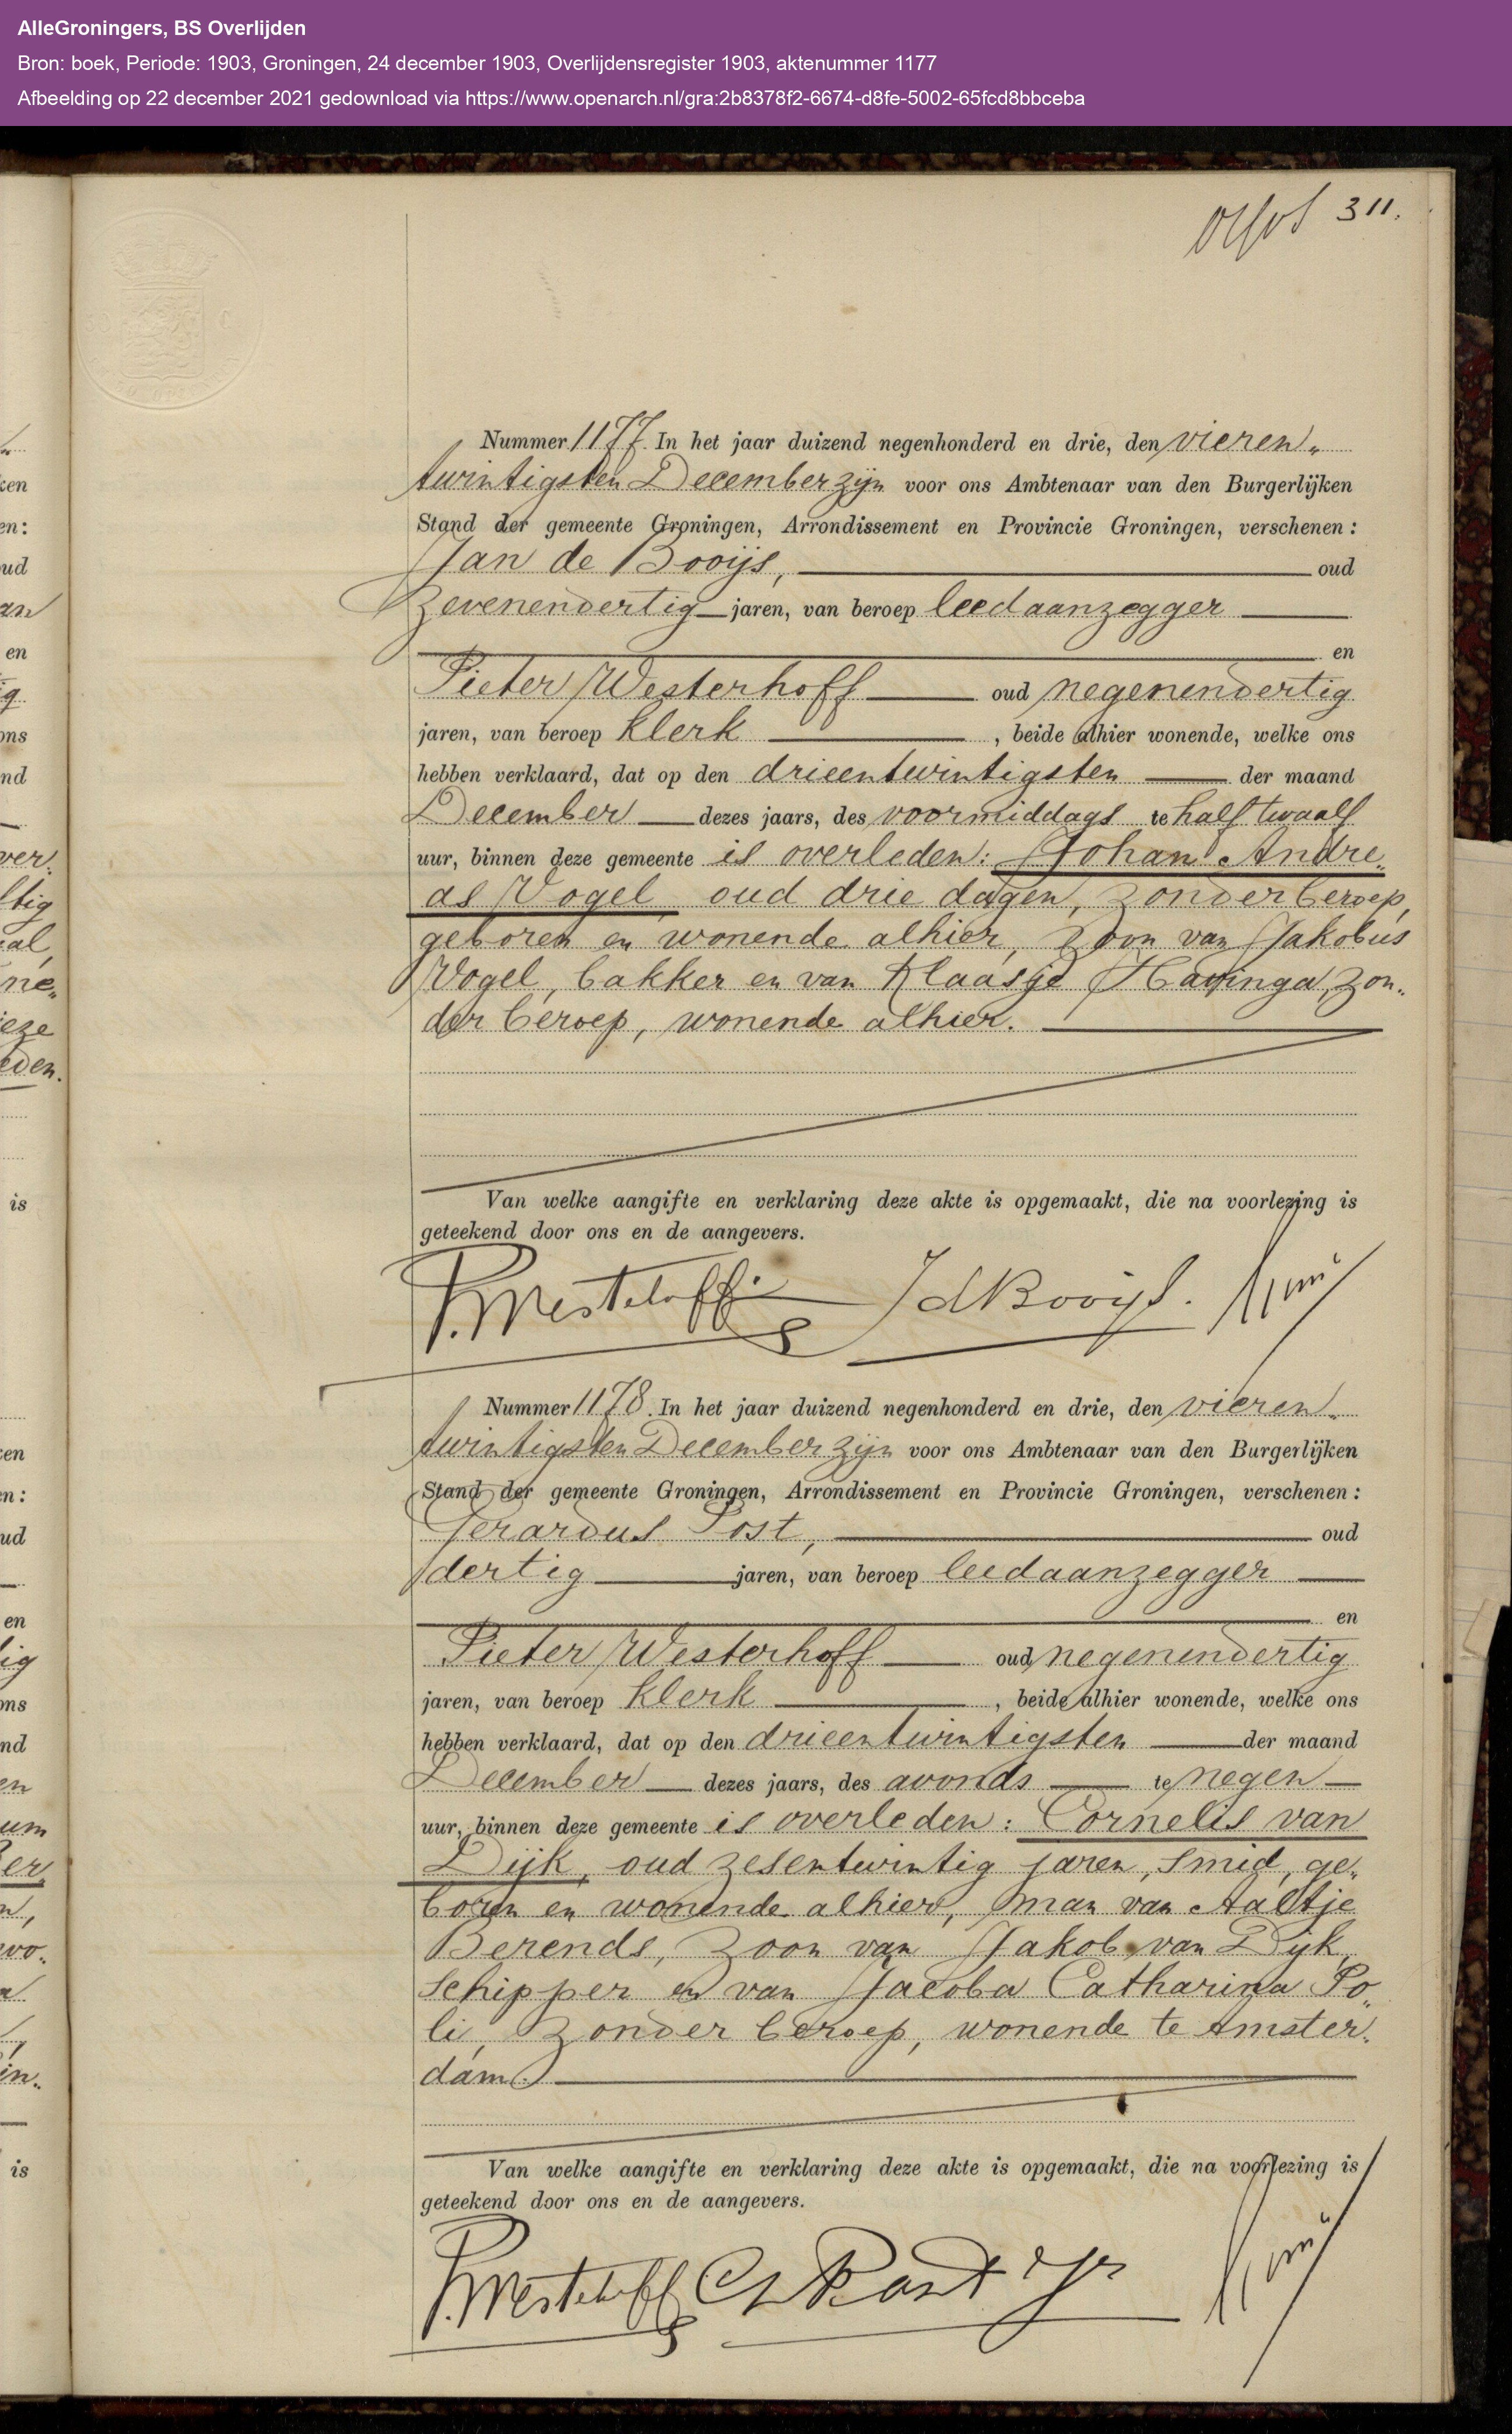 AlleGroningers, BS Overlijden
Bron: boek, Periode: 1903, Groningen, 24 december 1903, Overlijdensregister 1903, aktenummer 1177
Afbeelding op 22 december 2021 gedownload via https://www.openarch.nl/gra:2b8378f2-6674-d8fe-5002-65fcd8bbceba
311.
Nummer 1177. In het jaar duizend negenhonderd en drie, den vieren„
twintigsten December zijn voor ons Ambtenaar van den Burgerlijken
Stand der gemeente Groningen, Arrondissement en Provincie Groningen, verschenen:
Jan de Booijs, oud
zevenendertig jaren, van beroep leedaanzegger
en
Pieter Westerhoff oud negenendertig
jaren, van beroep klerk , beide alhier wonende, welke ons
hebben verklaard, dat op den drieentwintigsten der maand
December dezes jaars, des voormiddags te half twaalf
uur, binnen deze gemeente is overleden: Johan Andre„
as Vogel, oud drie dagen, zonder beroep,
geboren en wonende alhier, zoon van Jakobus
Vogel, bakker en van Klaasje Havinga, zon„
der beroep, wonende alhier.
Van welke aangifte en verklaring deze akte is opgemaakt, die na voorlezing is
geteekend door ons en de aangevers.
P. Westerhoff JdBooijs.
Nummer 1178. In het jaar duizend negenhonderd en drie, den vieren„
twintigsten December zijn voor ons Ambtenaar van den Burgerlijken
Stand der gemeente Groningen, Arrondissement en Provincie Groningen, verschenen:
Gerardus Post, oud
dertig jaren, van beroep leedaanzegger
en
Pieter Westerhoff oud negenendertig
jaren, van beroep klerk , beide alhier wonende, welke ons
hebben verklaard, dat op den drieentwintigsten der maand
December dezes jaars, des avonds te negen
uur, binnen deze gemeente is overleden: Cornelis van
Dijk, oud zesentwintig jaren, smid, ge„
boren en wonende alhier, man van Aaltje
Berends, zoon van Jakob van Dijk,
schipper en van Jacoba Catharina Po„
li, zonder beroep, wonende te Amster„
dam.
Van welke aangifte en verklaring deze akte is opgemaakt, die na voorlezing is
geteekend door ons en de aangevers.
P. Westerhoff G Post Jr